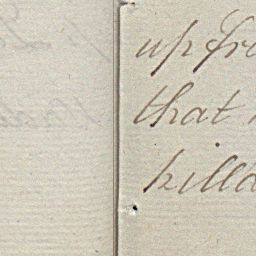 up fro
that
killd